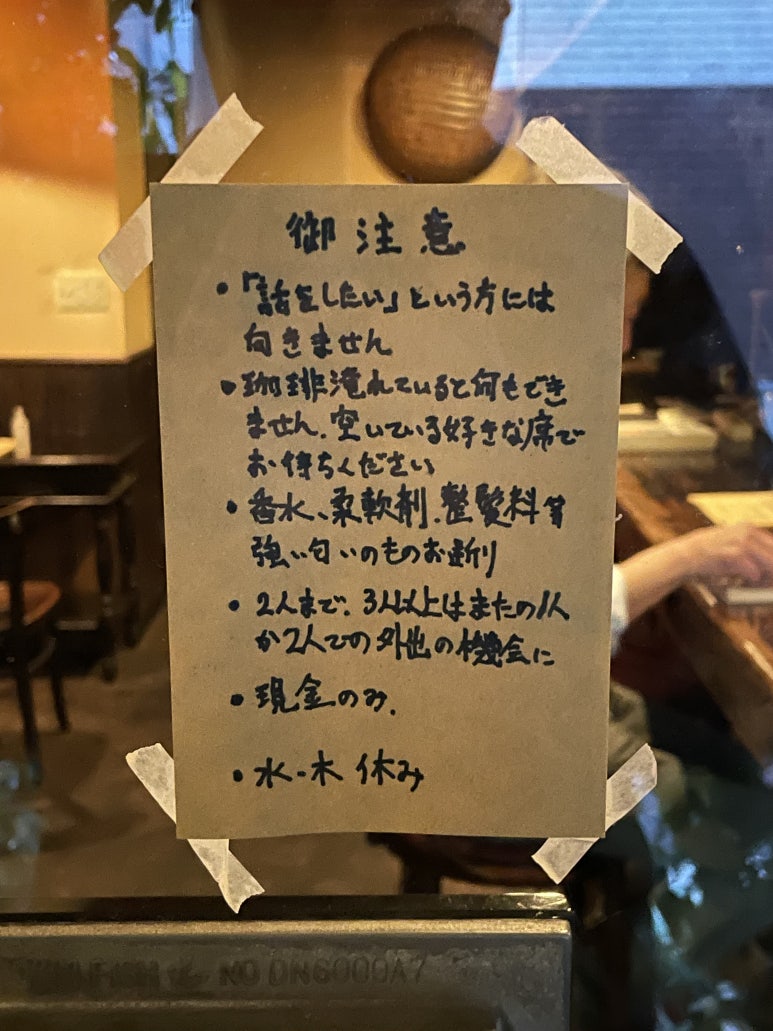 御注意
・「話をしたい」という方には
向きません
・珈琲淹れていると何もでき
ません、空いている好きな席で
お待ちください
・香水、柔軟剤、整髪料等
強い匂いのものお断り
・2人まで、3人以上はまたの1人
か2人での外出の機会に
・現金のみ、
・水・木 休み
NO DN6000A7